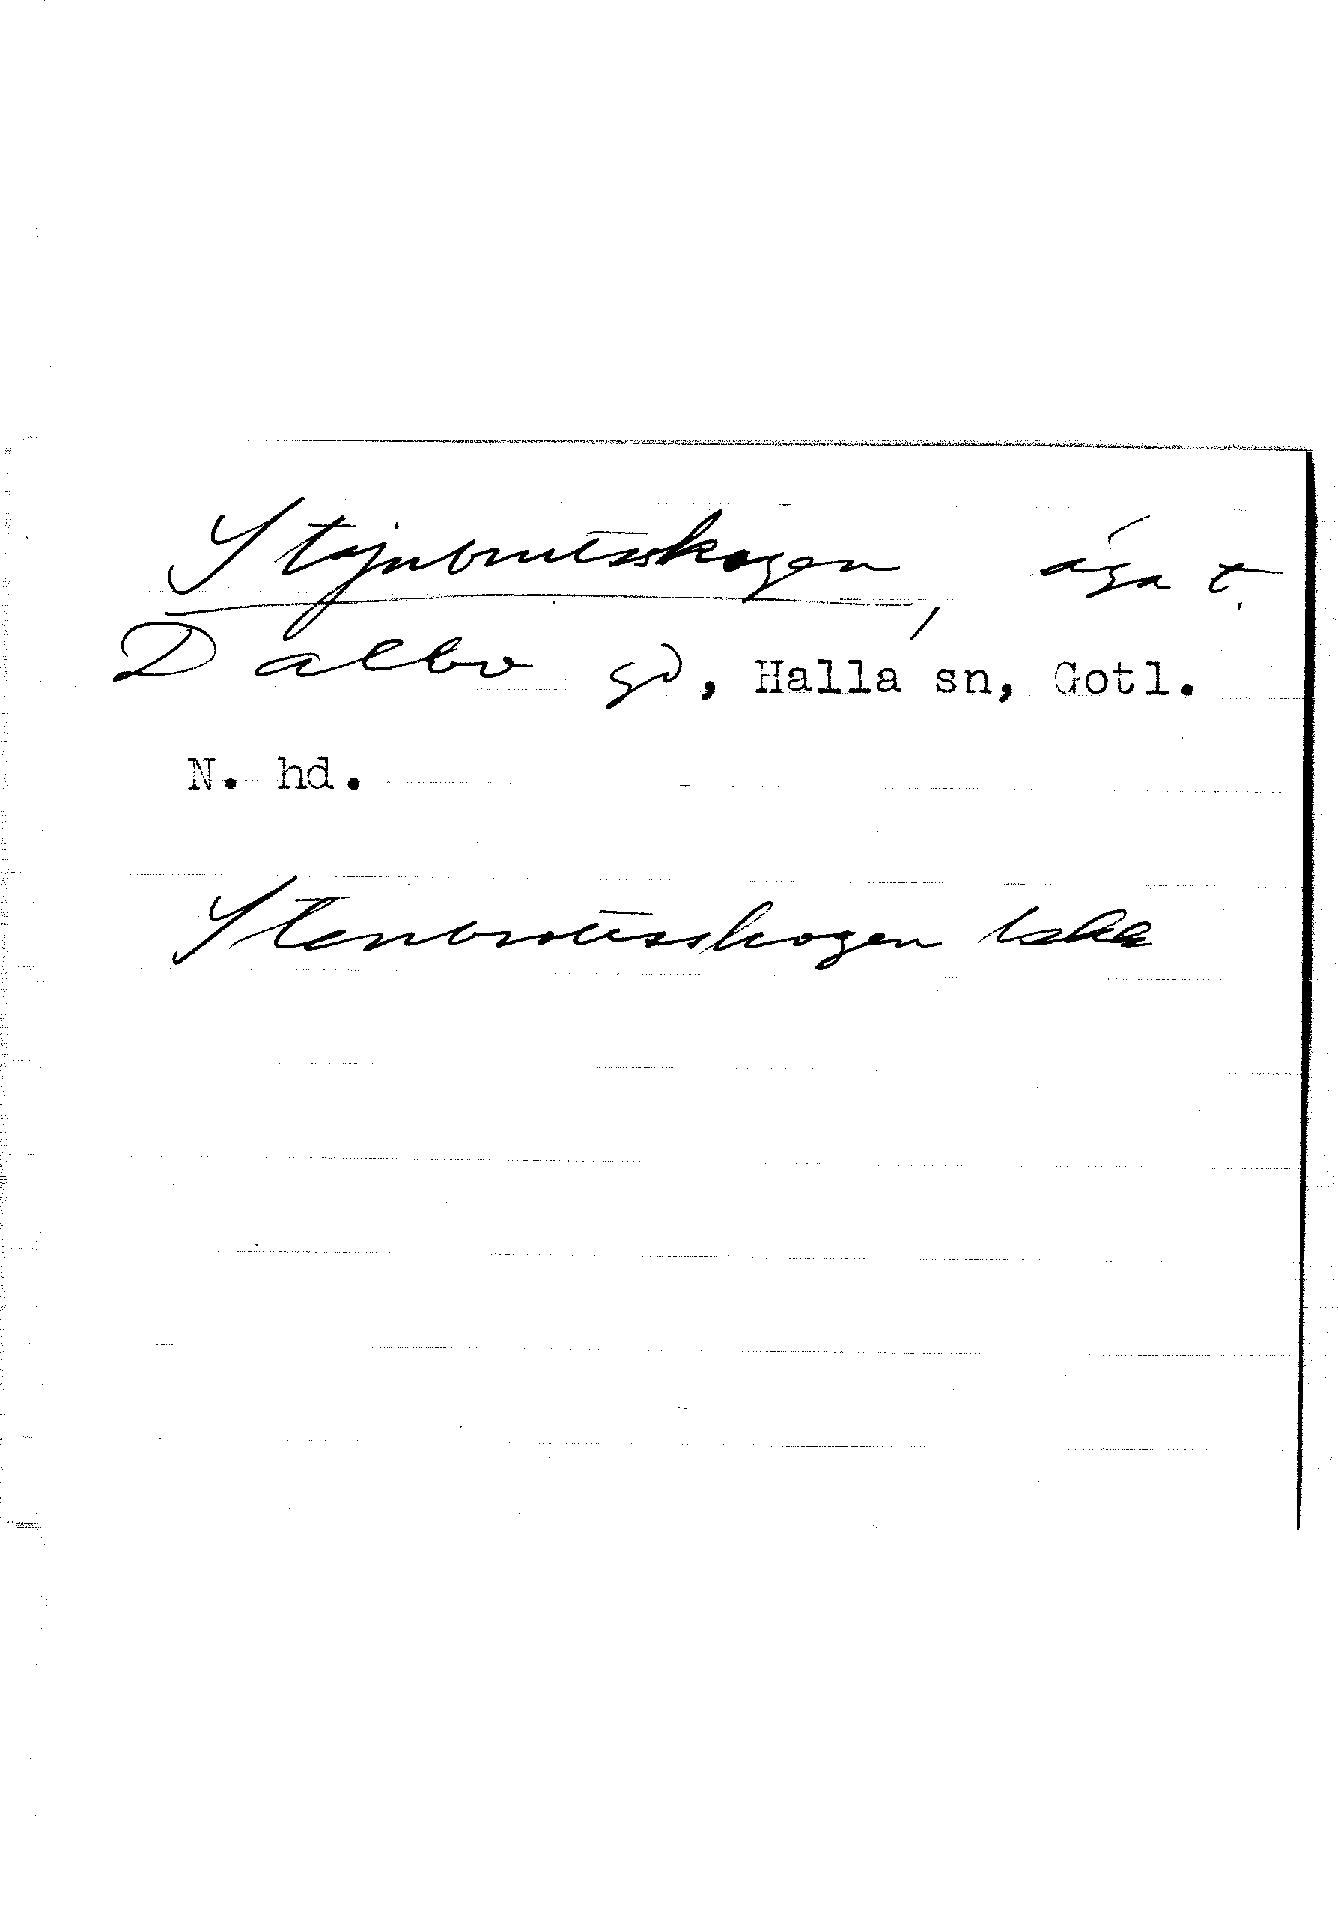 Stajnbrutsskogen, äga t.
Dalbo gd, Halla sn, Gotl.
N. hd.
Stenbrottsskogen